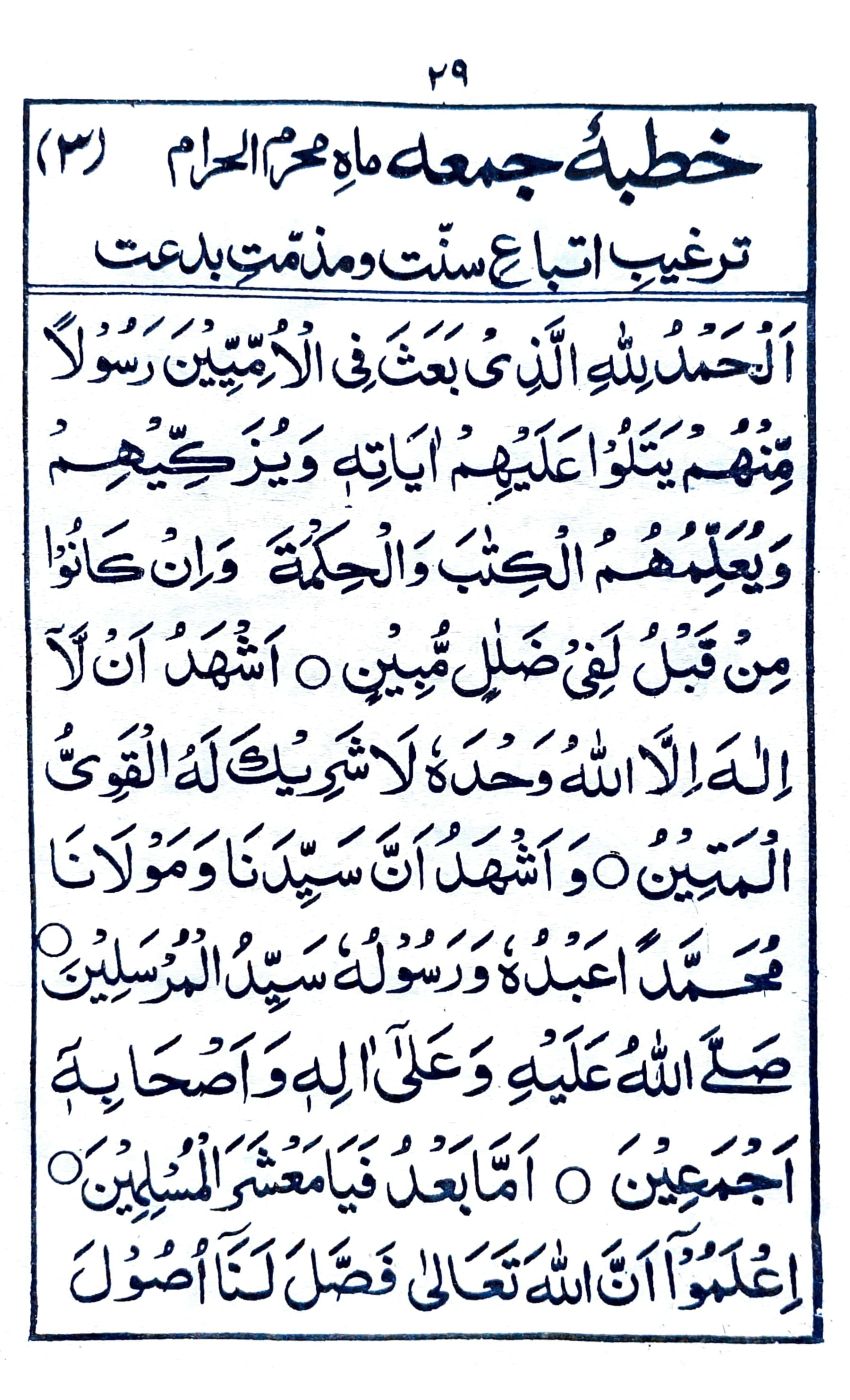 ۲۹
خطبۂ جمعہ ماہِ محرم الحرام (۳)
ترغیبِ اتباعِ سنّت ومذمّتِ بدعت
اَلْحَمْدُ لِلّٰهِ الَّذِىْ بَعَثَ فِى الْاُمِّيِّيْنَ رَسُوْلًا
مِّنْهُمْ يَتَلُوْا عَلَيْهِمْ اٰيَاتِهٖ وَيُزَكِّيْهِمْ
وَيُعَلِّمُهُمُ الْكِتٰبَ وَالْحِكْمَةَ وَاِنْ كَانُوْا
مِنْ قَبْلُ لَفِىْ ضَلٰلٍ مُّبِيْنٍ ○ اَشْهَدُ اَنْ لَّآ
اِلٰهَ اِلَّا اللّٰهُ وَحْدَهٗ لَا شَرِيْكَ لَهُ الْقَوِىُّ
الْمَتِيْنُ ○ وَاَشْهَدُ اَنَّ سَيِّدَنَا وَمَوْلَانَا
مُحَمَّدًا عَبْدُهٗ وَرَسُوْلُهٗ سَيِّدُ الْمُرْسَلِيْنَ ○
صَلَّى اللّٰهُ عَلَيْهِ وَعَلٰٓى اٰلِهٖ وَاَصْحَابِهٖٓ
اَجْمَعِيْنَ ○ اَمَّا بَعْدُ فَيَا مَعْشَرَ الْمُسْلِمِيْنَ ○
اِعْلَمُوْٓا اَنَّ اللّٰهَ تَعَالٰى فَصَّلَ لَنَآ اُصُوْلَ